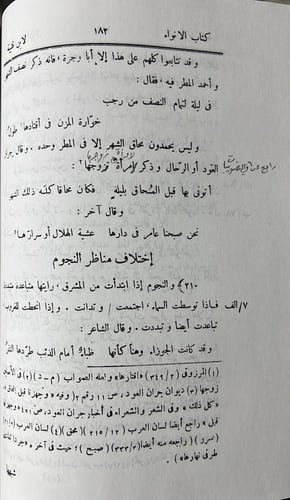 كتاب الانواء ١٨٢ لابن قتيبة
و قد تتابعوا كلهم على هذا إلا أبا وجزة، فانه ذكر نصف الشهر
و أحمد المطر فيه، فقال :
فى ليلة لتمام النصف من رجب
خوّارة المزن فى أقتادها طول
و ليس يحمدون محاق الشهر إلا فى المطر وحده . و قال جران
العود أو الرحّال و ذكر امرأة تزوجها :
أتونى بها قبل المُحاق بليلة فكان محاقا كله ذلك الشهر
و قال آخر :
نحن صبحنا عامر فى دارها عشية الهلال أو سرارها
إختلاف مناظر النجوم
٢١٠) والنجوم إذا ابتدأت من المشرق، رأيتها متباعدة متبددة
٧/الف فاذا توسطت السماء، اجتمعت / و تدانت . و إذا انحطت للغروب
تباعدت أيضا و تبددت . و قال الشاعر :
و قد كانت الجوزاء وهنا كأنها ظباء أمام الذئب طردها النفر
(١) المرزوقى (٣٤٢/٢) «اقتارها» ولعله الصواب (م - د) (٢) فى الأصل
زوجها (٣) ديوان جران العود، ص ١١ رقم ٢ وفيه «وجهزنا قبل المحاق»
«كل ذلك» و فى الشعر والشعراء فى أخبار جران العود، ص ٤٥٠
قبل» راجع أيضا لسان العرب (٢١٥/١٢) (محق) (٤) لسان العرب
(سرر) (راجعه منه أيضا (٣٣٣/٣) (صبح) ؛ حيث فى آخره «جردا تعادى
طرفى نهارها» .
شبهها